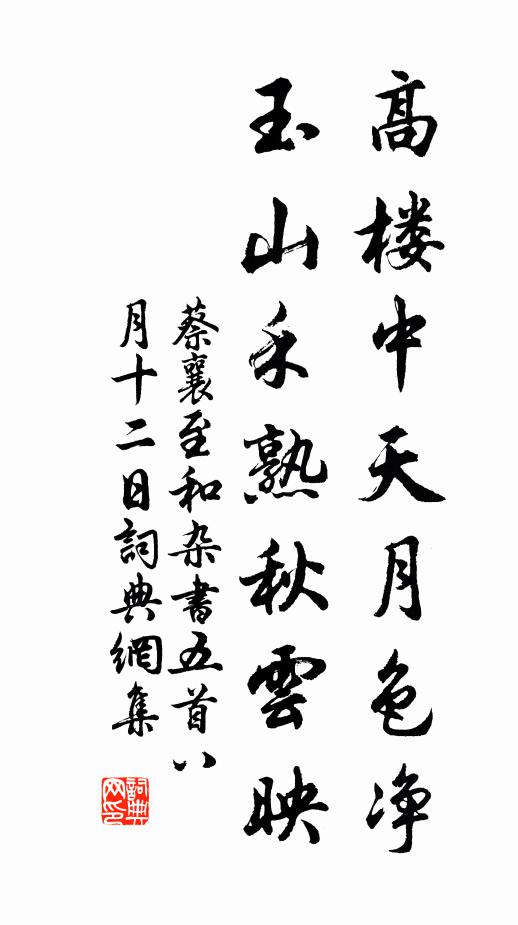 高楼中天月色净
玉山禾熟秋雲映
蔡襄至和杂書五首八
月十二日詞典網集
詞典网印